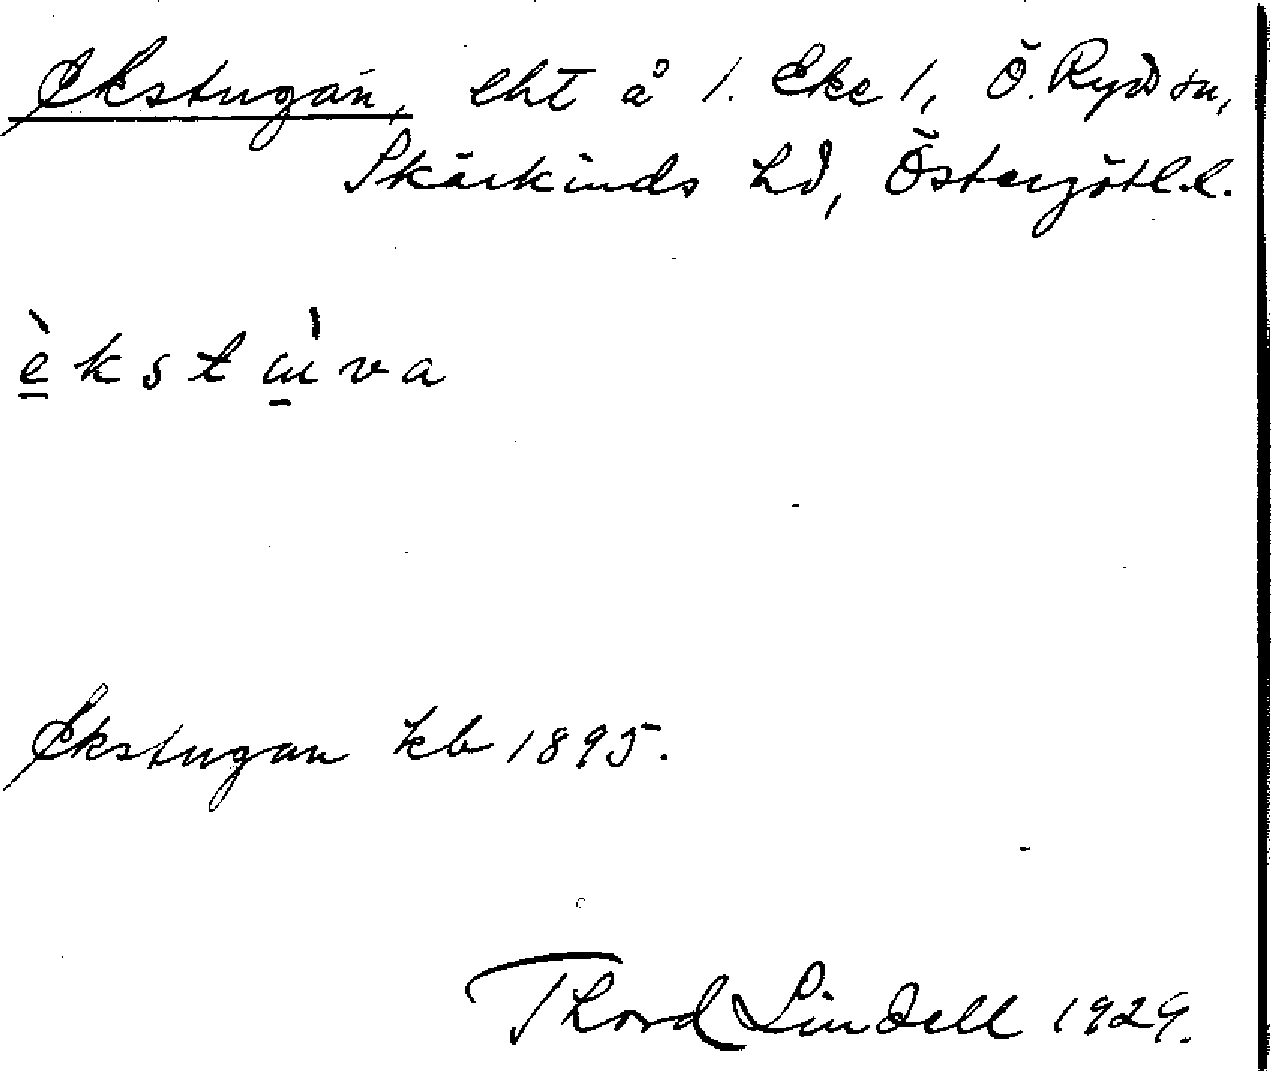 Ekstugan, lht å 1. Eke 1, Ö. Ryd sn,
Skärkinds hd, Östergötl. l.
èkstɯ̀va
Ekstugan kb 1895.
Thord Lindell 1929.